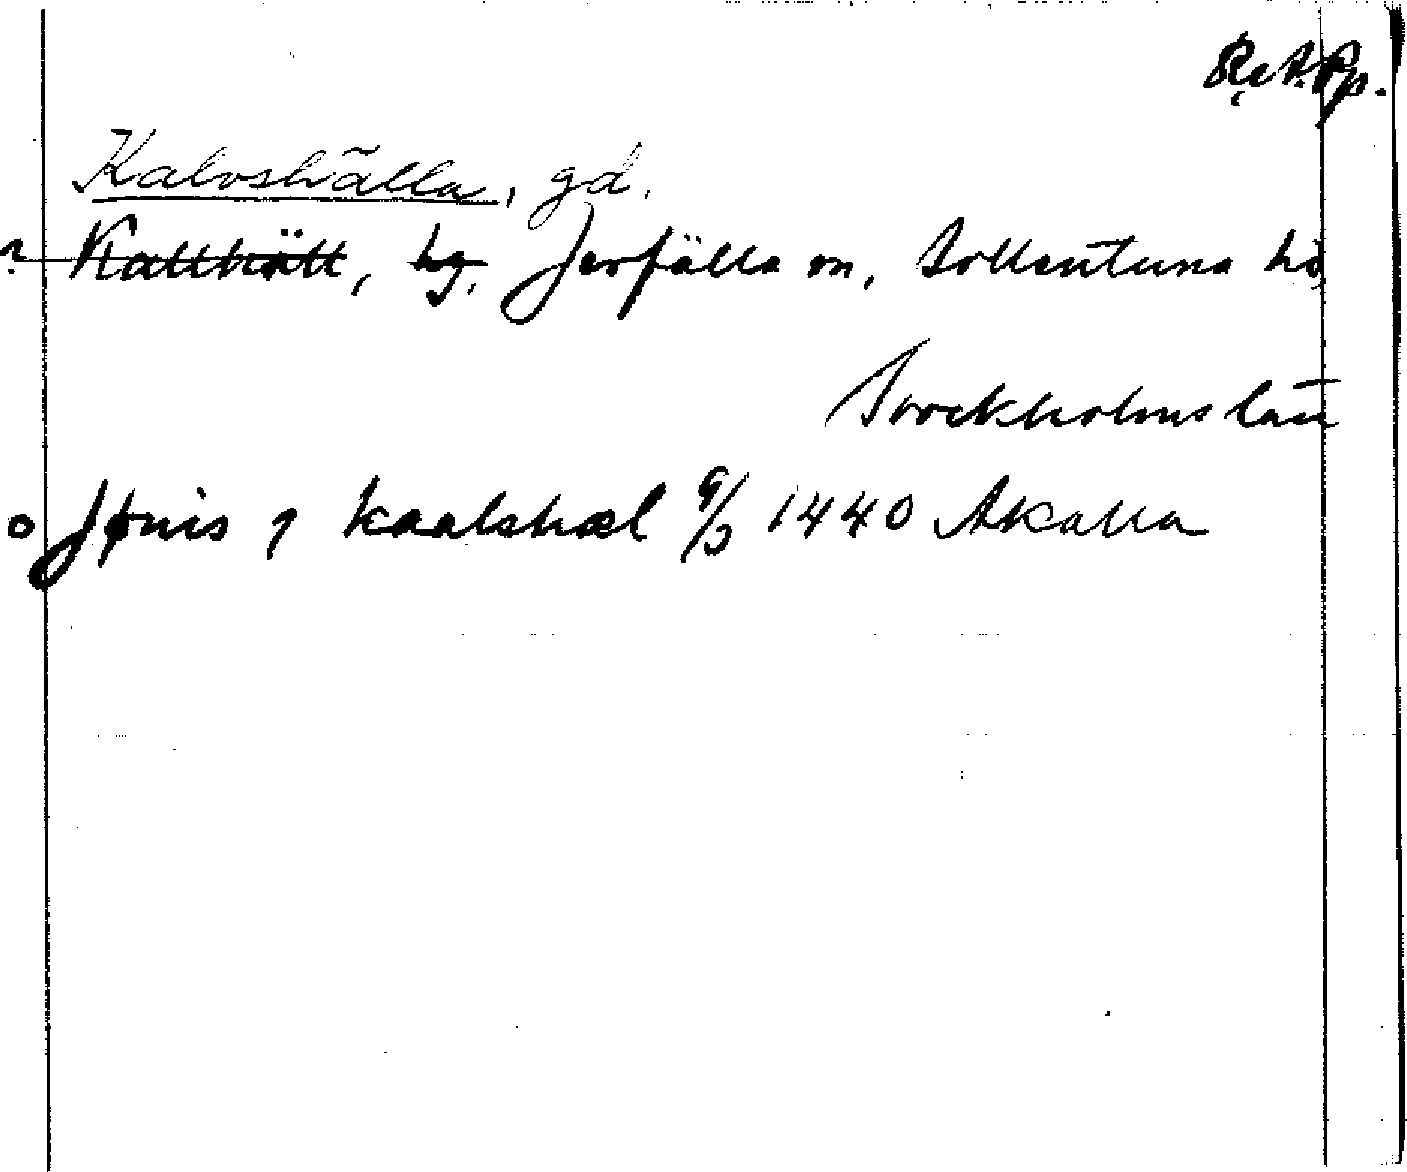 RAPp.
Kalvshälla, gd.
? Kallhäll, by, Jerfälla sn, Sollentuna hd
Stockholms län
o Jønis j kaalshæl 9/3 1440 Akalla